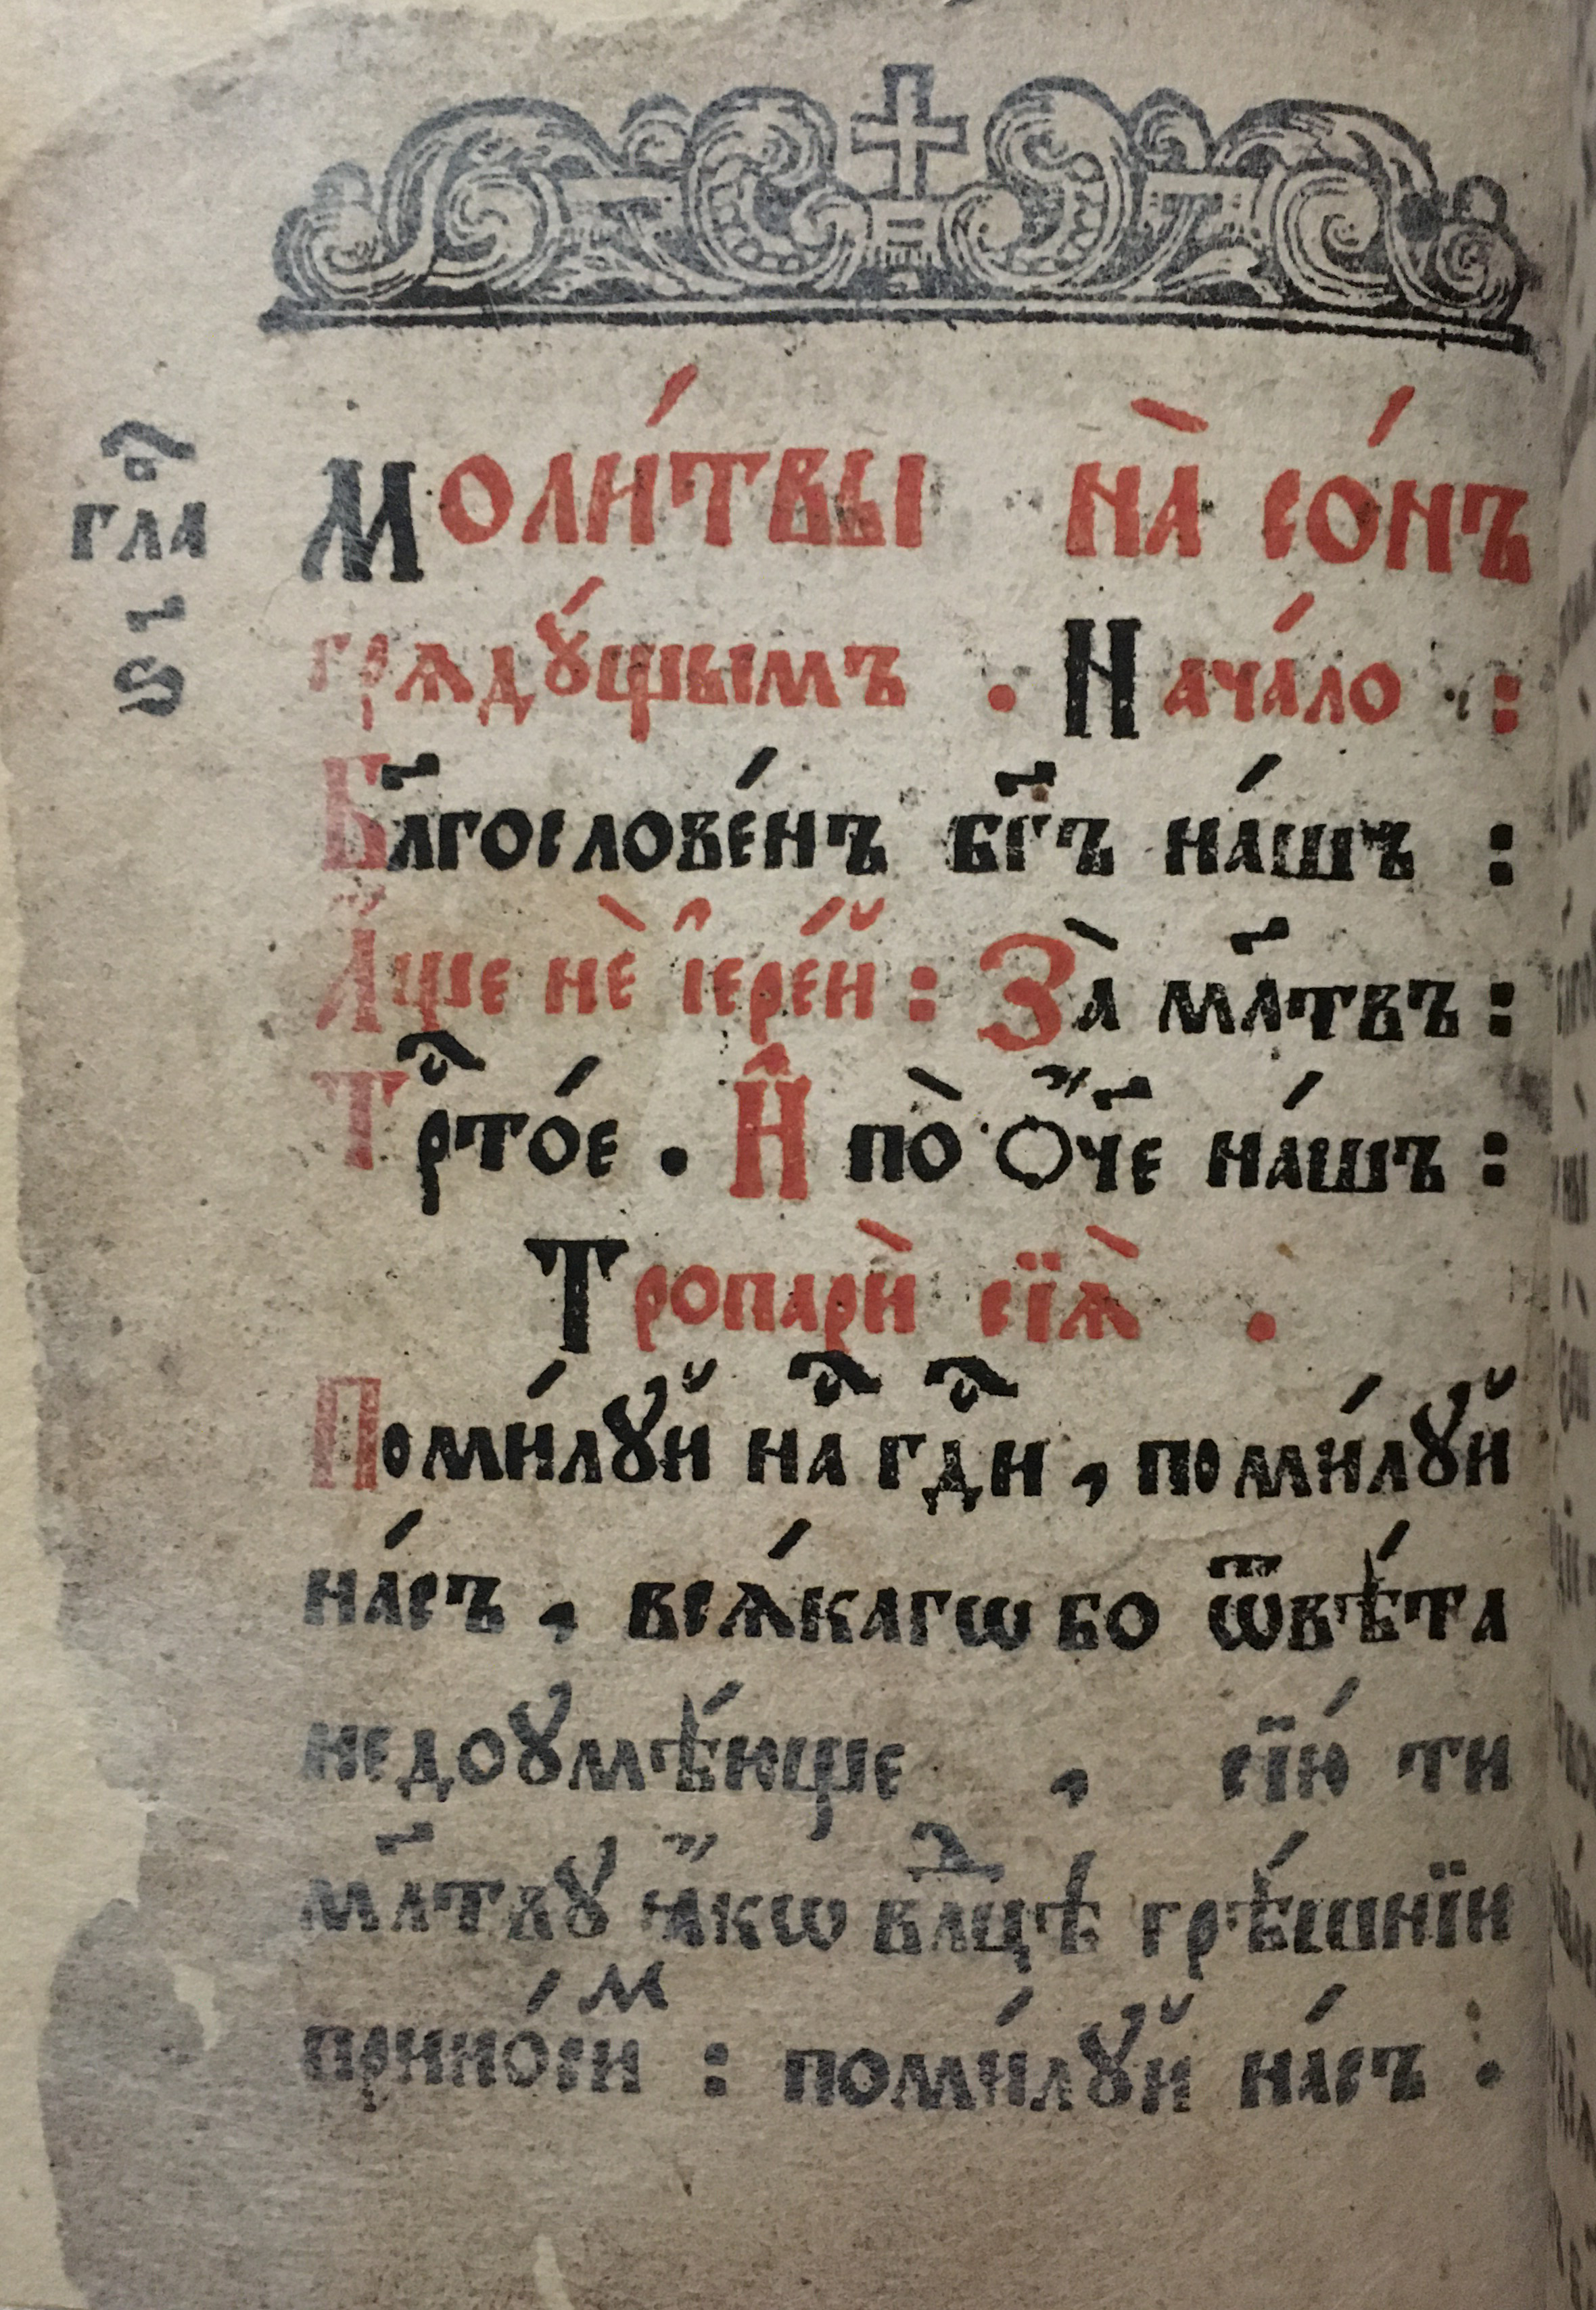 гла҇
ѕ҃
Моли́твы на̀ со́нъ
грѧдꙋ́щымъ . Нача́ло :
Бл҃гослове́нъ бг҃ъ на́шъ :
А҆́ще нѐ і҆ере́й : За̀ мл҃твъ :
Тр҇то́е . И҆ по̀ Ѻ҆́ч҃е на́шъ :
Тропарѝ сїѧ̀ .
Поми́лꙋй на҇ гд҇и , поми́лꙋй
на́съ , всѧ́кагѡ бо ѿвѣ́та
недоꙋмѣ́юще , сїю́ ти
мл҃твꙋ ꙗ҆́кѡ влⷣцѣ грѣ́шнїи
прино́сиⷨ : поми́лꙋй на́съ .